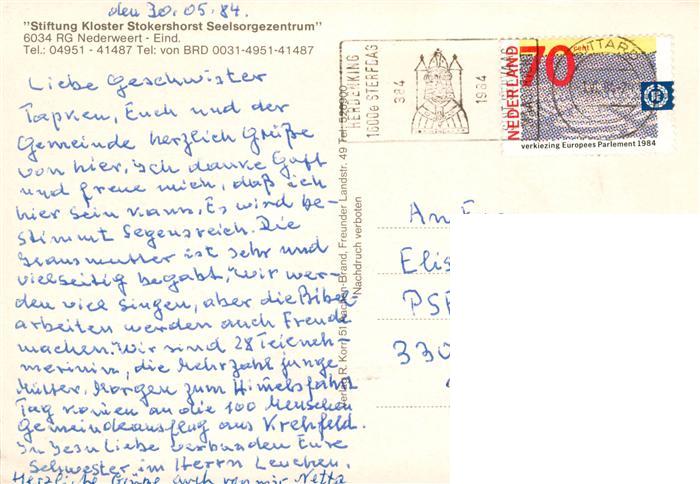 den 30.05.84.
"Stiftung Kloster Stokershorst Seelsorgezentrum"
6034 RG Nederweert - Eind.
Tel.: 04951 - 41487 Tel: von BRD 0031-4951-41487
Liebe Geschwister
Tapken, Euch und der
Gemeinde herzlich Grüße
von hier, ich danke Gott
und freue mich, daß ich
hier sein kann. Es wird be-
stimmt Segensreich. Die
Hausmutter ist sehr und
vielseitig begabt, Wir wer-
den viel singen, aber die Bibel-
arbeiten werden auch Freude
machen. Wir sind 28 Teieneh-
merinin, die Mehrzahl junge
Mütter. Morgen zum Himelsfahrt
Tag komen an die 100 Menschen
Gemeindeausflug aus Krehfeld.
In Jesu Liebe verbunden Eure
Schwester im Herrn Leuchen.
Herzliche Grüße auch von mir Netta
Verlag R. Korr, 51 Aachen-Brand, Freunder Landstr. 49 Tel. 520900
Nachdruck verboten
HERDENKING
1600e STERFDAG
384
1984
NEDERLAND
70
cent
verkiezing Europees Parlement 1984
SITTARD
An
Elis
PSF
330